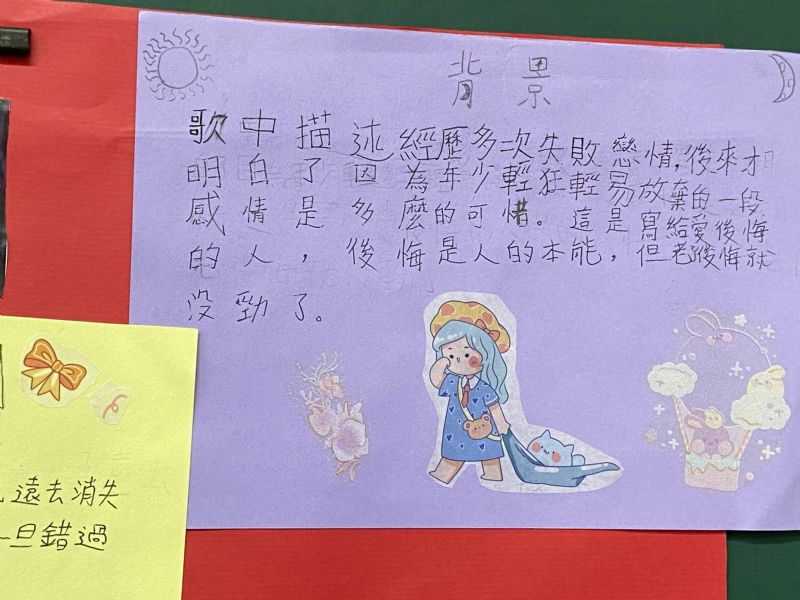 背景
歌中描述經歷多次失敗戀情,後來才
明白了因為年少輕狂輕易放棄的一段
感情是多麼的可惜。這是寫給愛後悔
的人，後悔是人的本能，但老後悔就
沒勁了。
遠去消失
一旦錯過